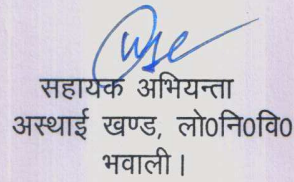 सहायक अभियन्ता
अस्थाई खण्ड, लो0नि0वि0
भवाली।